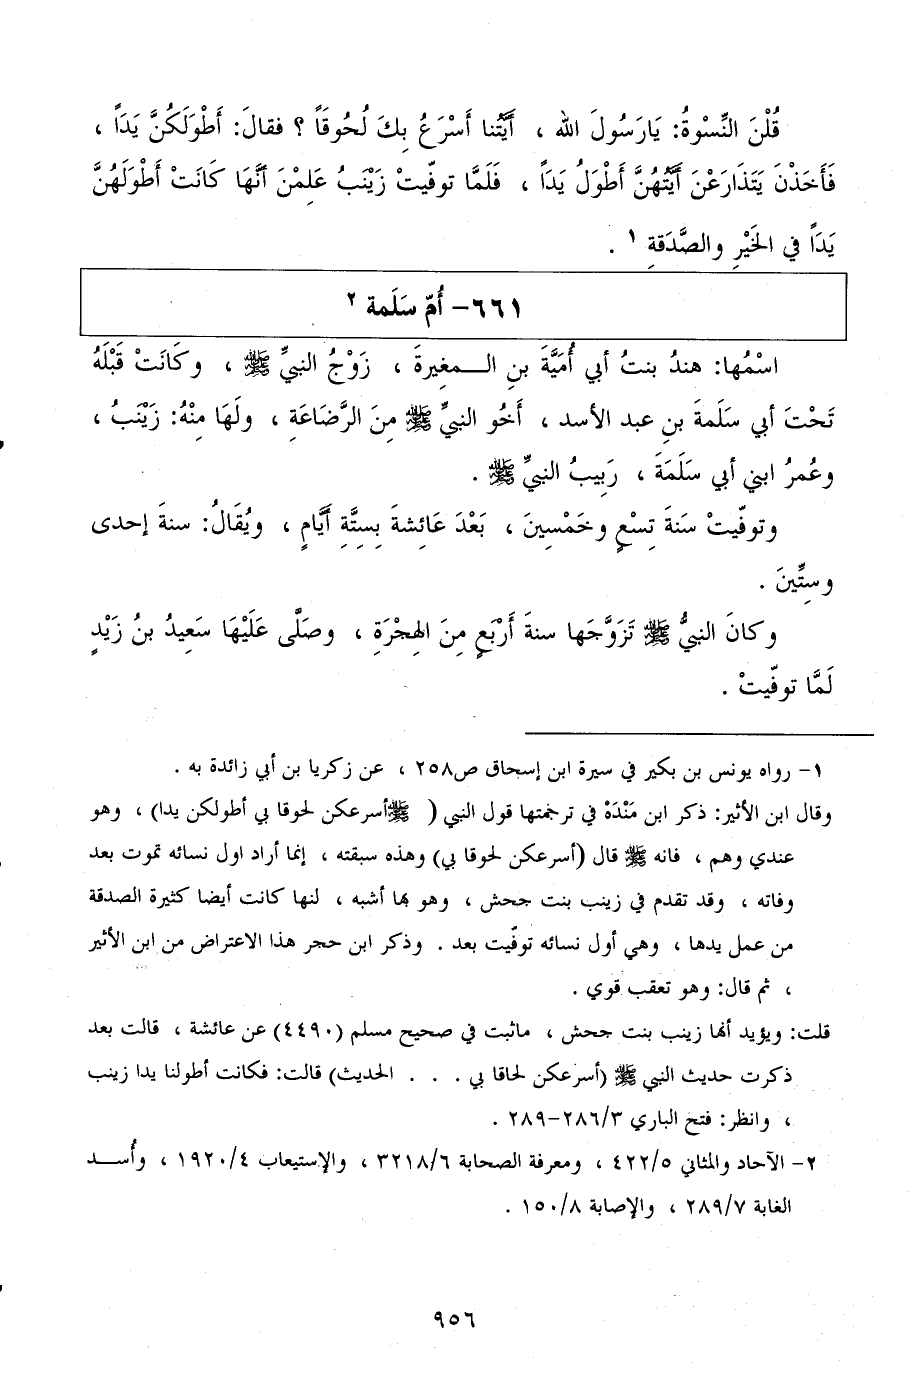 قُلْنَ النِّسْوةُ: يَارَسُولَ الله ، أَيَّتُنا أَسْرَعُ بِكَ لُحُوقَاً ؟ فقالَ: أَطْوَلَكُنَّ يَدَاً ،
فَأَخَذْنَ يَتَذَارَعْنَ أَيَّتُهُنَّ أَطْوَلُ يَدَاً ، فَلَمَّا توفّيتْ زَيْنَبُ عَلِمْنَ أنَّهَا كَانَتْ أَطْوَلَهُنَّ
يَدَاً في الخَيْرِ والصَّدَقةِ ١ .
٦٦١- أُمّ سَلَمة ٢
اسْمُها: هندُ بنتُ أبي أُمَيَّةَ بنِ الـــمغيرةَ ، زَوْجُ النبيِّ ﷺ ، وكَانَتْ قَبْلَهُ
تَحْتَ أبي سَلَمةَ بنِ عبد الأسد ، أَخُو النبيِّ ﷺ مِنَ الرَّضَاعَةِ ، ولَهَا مِنْهُ: زَيْنَبُ ،
وعُمرُ ابني أبي سَلَمَةَ ، رَبِيبُ النبيِّ ﷺ .
وتوفّيتْ سَنةَ تِسْعٍ وخَمْسِينَ ، بَعْدَ عَائِشةَ بِستَّةِ أَيَّامٍ ، ويُقَالُ: سنةَ إحدى
وستِّينَ .
وكانَ النبيُّ ﷺ تَزَوَّجَها سنةَ أَرْبَعٍ مِنَ الهِجْرَةِ ، وصَلَّى عَلَيْهَا سَعِيدُ بنُ زَيْدٍ
لَمَّا توفّيتْ .
١- رواه يونس بن بكير في سيرة ابن إسحاق ص٢٥٨ ، عن زكريا بن أبي زائدة به .
وقال ابن الأثير: ذكر ابن مَنْدَهْ في ترجمتها قول النبي ( ﷺأسرعكن لحوقا بي أطولكن يدا) ، وهو
عندي وهم ، فانه ﷺ قال (أسرعكن لحوقا بي) وهذه سبقته ، إنما أراد اول نسائه تموت بعد
وفاته ، وقد تقدم في زينب بنت جحش ، وهو بها أشبه ، لنها كانت أيضا كثيرة الصدقة
من عمل يدها ، وهي أول نسائه توفّيت بعد . وذكر ابن حجر هذا الاعتراض من ابن الأثير
، ثم قال: وهو تعقب قوي .
قلت: ويؤيد أنها زينب بنت جحش ، ماثبت في صحيح مسلم (٤٤٩٠) عن عائشة ، قالت بعد
ذكرت حديث النبي ﷺ (أسرعكن لحاقا بي . . . الحديث) قالت: فكانت أطولنا يدا زينب
، وانظر: فتح الباري ٢٨٦/٣-٢٨٩ .
٢- الآحاد والمثاني ٤٢٢/٥ ، ومعرفة الصحابة ٣٢١٨/٦ ، والإستيعاب ١٩٢٠/٤ ، وأُســـد
الغابة ٢٨٩/٧ ، والإصابة ١٥٠/٨ .
٩٥٦